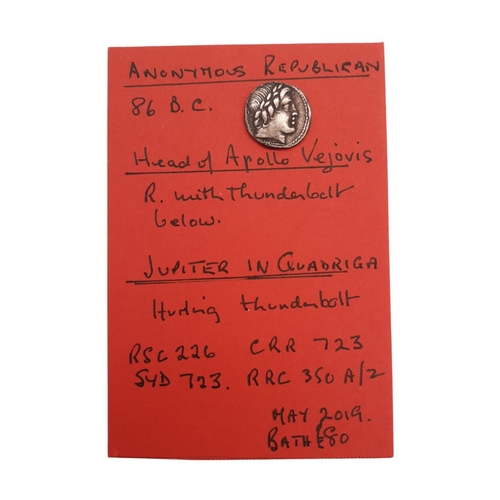 ANONYMOUS REPUBLICAN
86 B.C.
Head of Apollo Vejovis
R. with Thunderbolt
below.
JUPITER IN QUADRIGA
Hurling thunderbolt
RSC 226 CRR 723
SYD 723. RRC 350 A/2
MAY 2019.
BATH £80